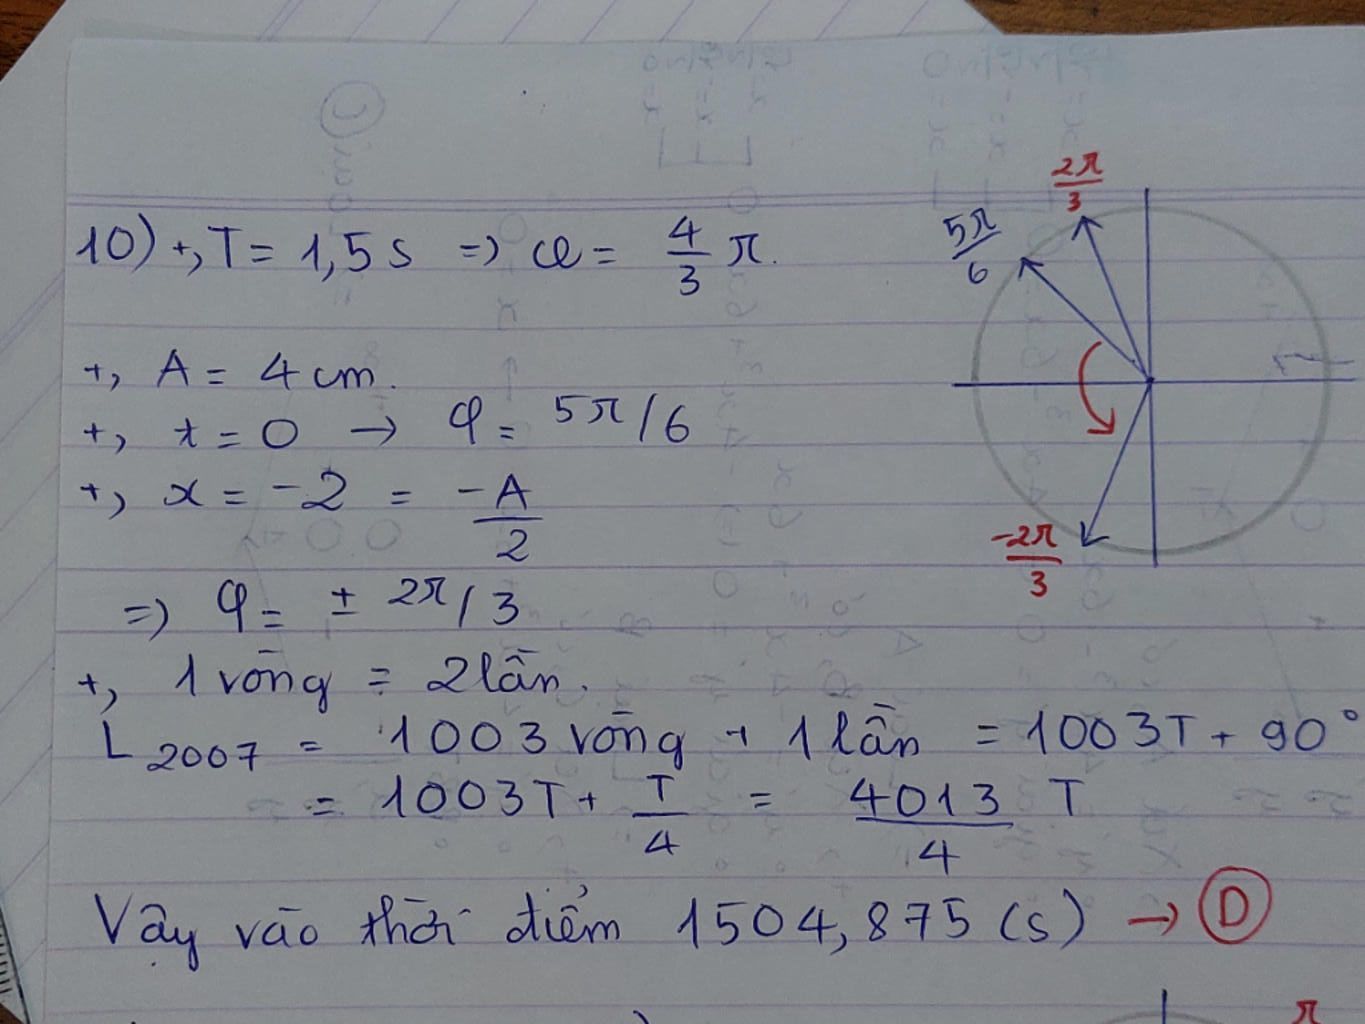 10) +, T = 1,5 s => ω = 4/3 π.
+, A = 4 cm.
+, t = 0 → φ = 5π/6
+, x = -2 = -A/2
=> φ = ± 2π/3
+, 1 vòng = 2 lần.
L2007 = 1003 vòng + 1 lần = 1003T + 90°
= 1003T + T/4 = 4013/4 T
Vậy vào thời điểm 1504,875 (s) → D
2π/3
5π/6
-2π/3
π